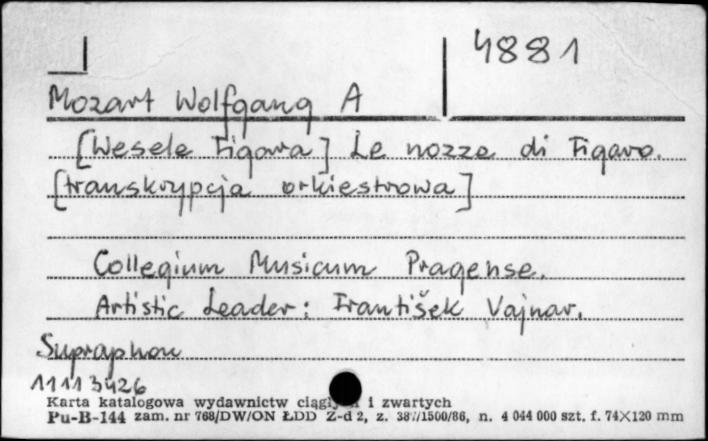 4881
Mozart Wolfgang A
[Wesele Figara] Le nozze di Figaro.
[transkrypcja orkiestrowa]
Collegium Musicum Pragense.
Artistic Leader: František Vajnar.
Supraphon
1111 3426
Karta katalogowa wydawnictw ciągłych i zwartych
Pu-B-144 zam. nr 768/DW/ON ŁDD Z-d 2, z. 387/1500/86, n. 4 044 000 szt. f. 74×120 mm